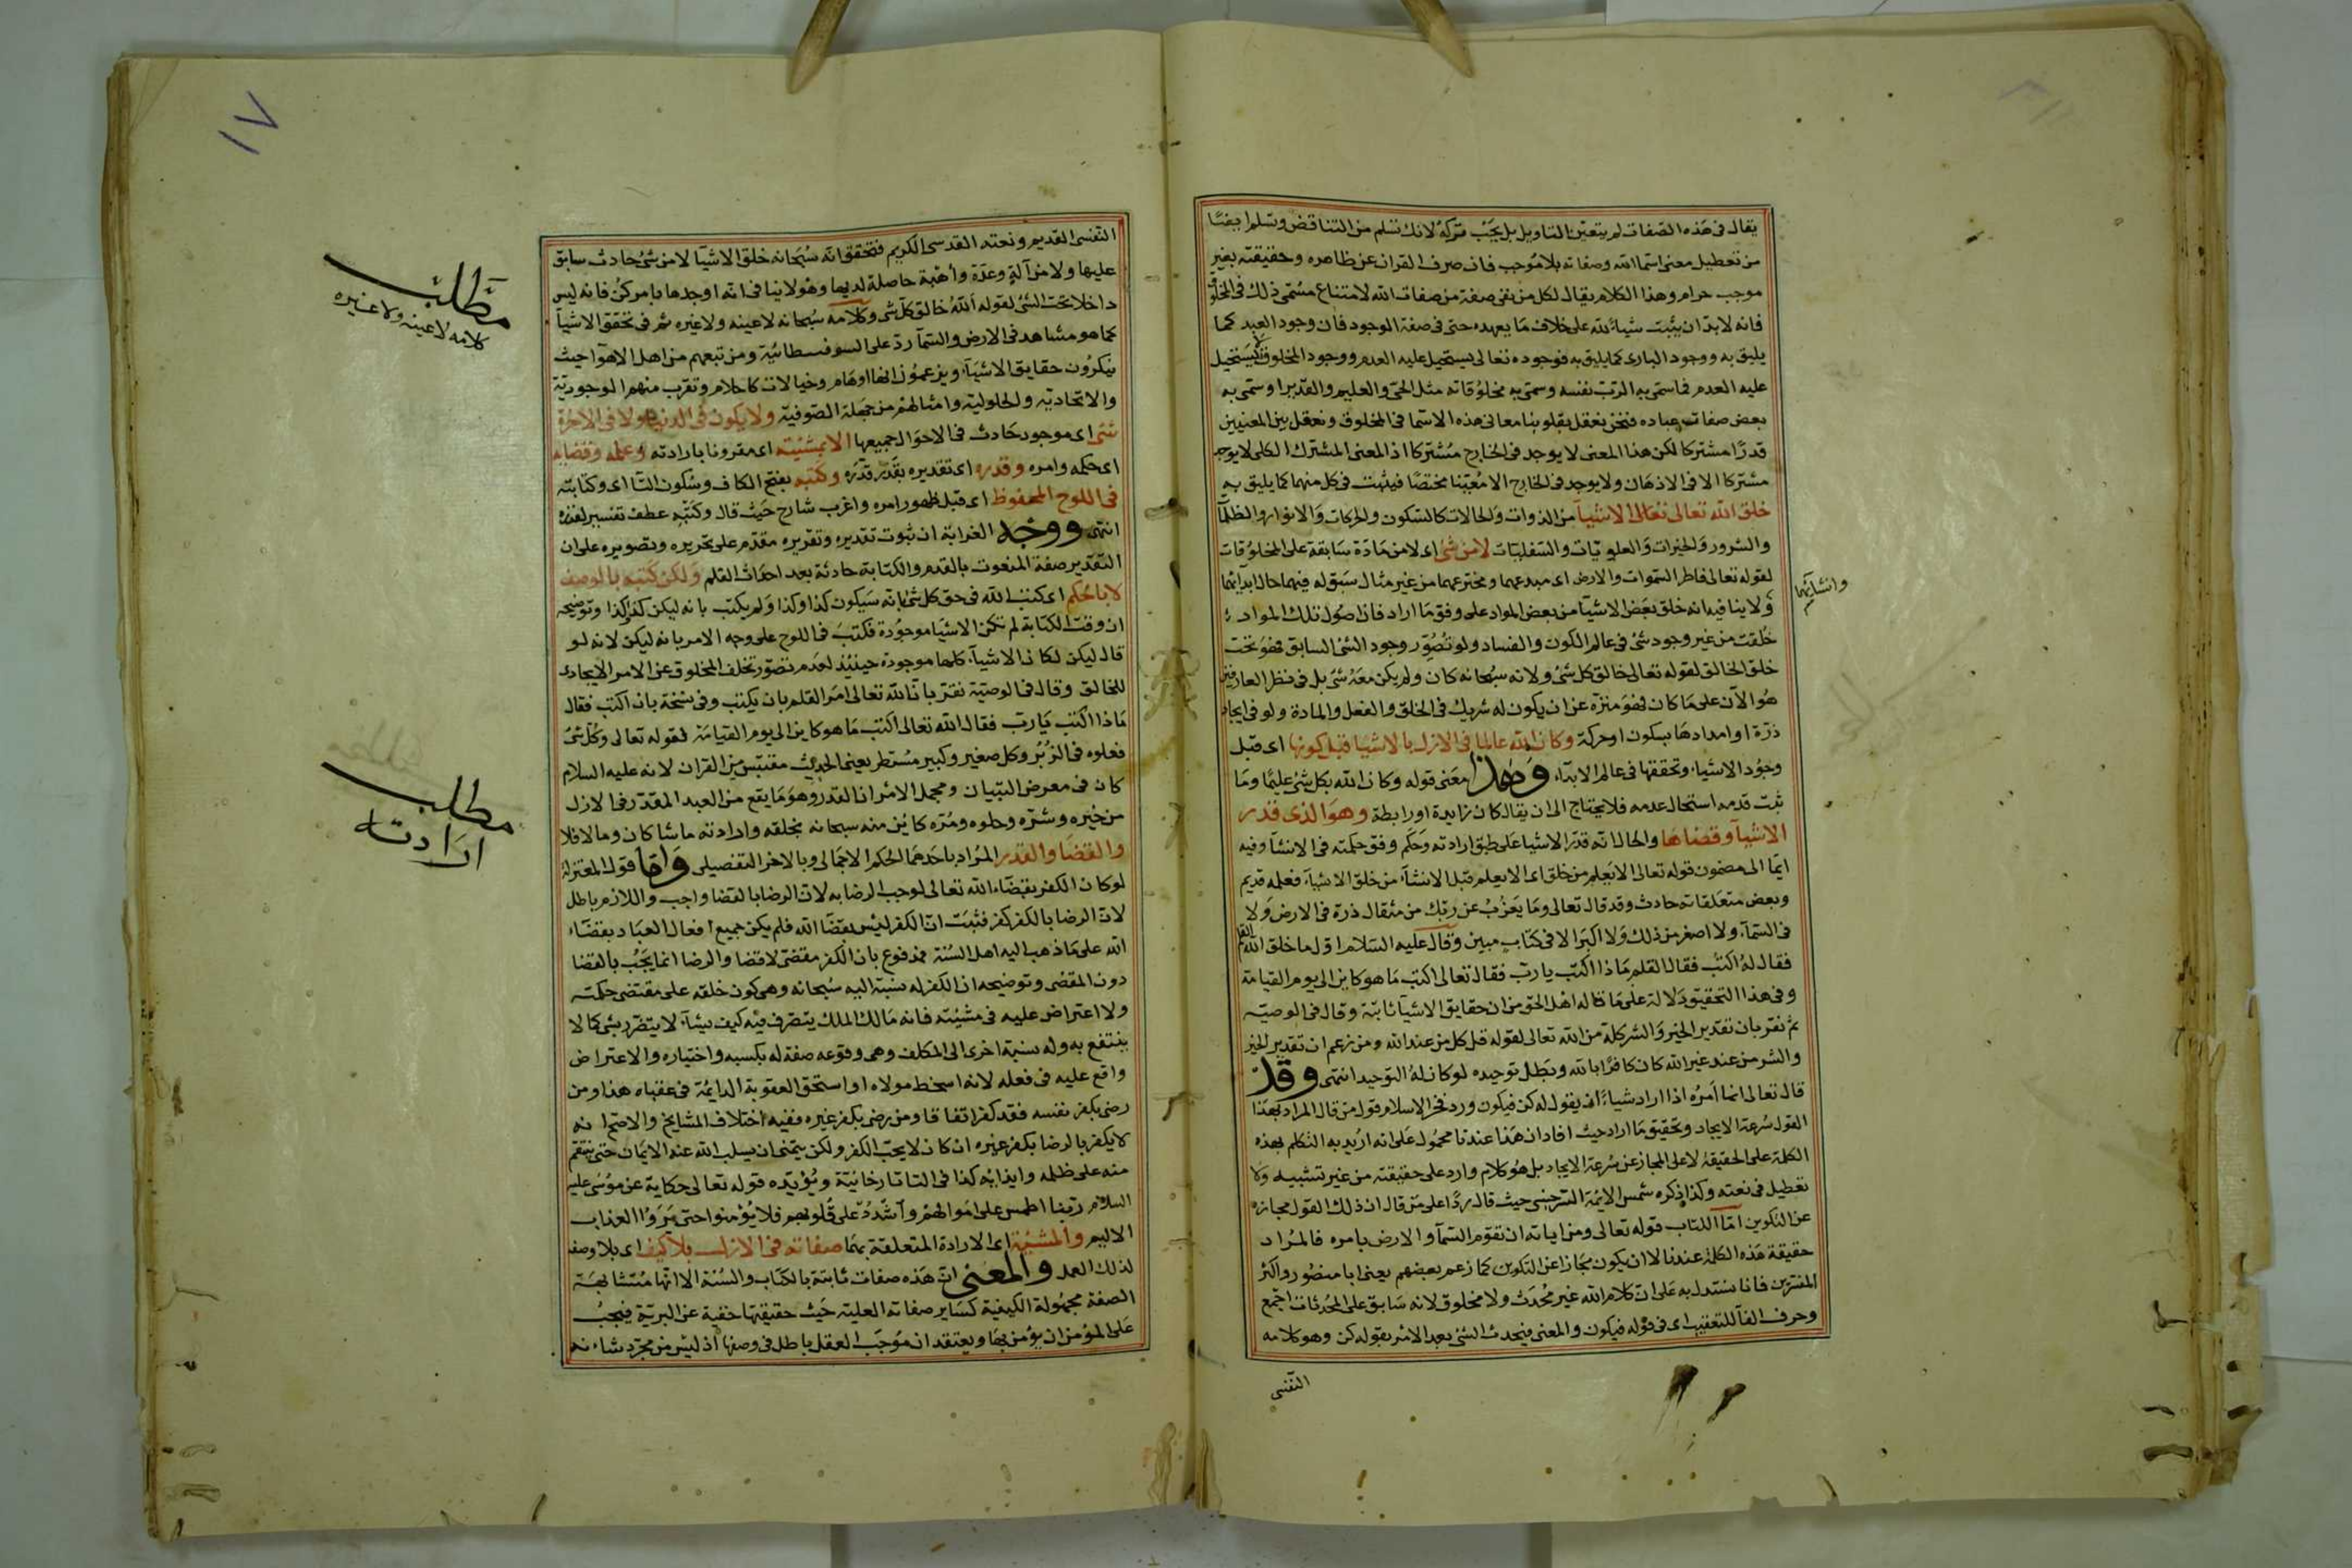 يقال فى هذه الصفات لم يتعين التاويل بل يجب تركه لانك تسلم من التناقض وتسلم ايضا
من تعطيل معنى اسما الله وصفاته بلا موجب فان صرف القران عن ظاهره وحقيقته بغير
موجب حرام وهذا الكلام يقال لكل من نفى صفة من صفات الله لامتناع مسمى ذلك فى المخلوق
فانه لا بد ان يثبت شياء لله على خلاف ما يعهده حتى فى صفة الوجود فان وجود العبد كما
يليق به ووجود البارى كما يليق به فوجوده تعالى يستحيل عليه العدم ووجود المخلوق لا يستحيل
عليه العدم فما سمى به الرب نفسه وسمى به مخلوقاته مثل الحى والعليم والقدير او سمى به
بعض صفات عباده فنحن نعقل بقلوبنا معانى هذه الاسما فى المخلوق ونعقل بين المعنيين
قدرا مشتركا لكن هذا المعنى لا يوجد فى الخارج مشتركا اذ المعنى المشترك الكلى لا يوجد
مشتركا الا فى الاذهان ولا يوجد فى الخارج الا معينا مختصا فيثبت فى كل منهما كما يليق به
خلق الله تعالى تعالى الاشيآ من الذوات والحالات كالسكون والحركات والانوار والظلمآ
والشرور والخيرات والعلويات والسفليات لا من شئ اى لا من مادة سابقة على المخلوقات
لقوله تعالى فاطر السموات والارض اى مبدعهما ومخترعهما من غير مثال سبق له فيهما حال ابدآئهما
وانشآئهما
ولا ينافيه انه خلق بعض الاشيآ من بعض المواد على وفق ما اراد فان اصول تلك المواد
خلقت من غير وجود شئ فى عالم الكون والفساد ولو تصور وجود الشئ السابق فهو تحت
خلق الخالق لقوله تعالى خالق كل شئ ولانه سبحانه كان ولم يكن معه شئ بل فى نظر العارفين
هو الآن على ما كان فهو منزه عن ان يكون له شريك فى الخلق والفعل والمادة ولو فى ايجاد
ذرة او امدادها بسكون او حركة وكان الله عالما فى الازل بالاشيا قبل كونها اى قبل
وجود الاشياء وتحققها فى عالم الابدآء وهذا معنى قوله وكان الله بكل شئ عليما وما
ثبت قدمه استحال عدمه فلا يحتاج الى ان يقال كان زايدة او رابطة وهو الذى قدر
الاشيآ وقضاها والحال انه قدر الاشيا على طبق ارادته وحكم وفق حكمته فى الانشآ وفيه
ايما الى مضمون قوله تعالى الا يعلم من خلق اى الا يعلم قبل الانشآء من خلق الاشيآء فعلمه قديم
وبعض متعلقاته حادث وقد قال تعالى وما يعزب عن ربك من مثقال ذرة فى الارض ولا
فى السمآء ولا اصغر من ذلك ولا اكبر الا فى كتاب مبين وقال عليه السلام اول ما خلق الله القلم
فقال له اكتب فقال القلم ماذا اكتب يا رب فقال تعالى اكتب ما هو كاين الى يوم القيامة
وفى هذا التحقيق دلالة على ما قاله اهل الحق من ان حقايق الاشيآ ثابتة وقال فى الوصيه
ثم نقر بان تقدير الخير والشر كله من الله تعالى لقوله قل كل من عند الله ومن زعم ان تقدير الخير
والشر من عند غير الله كان كافرا بالله وبطل توحيده لو كان له التوحيد انتهى وقد
قال تعالى انما امره اذا اراد شياء ان يقول له كن فيكون ورد فخر الاسلام قول من قال المراد بهذا
القول سرعة الايجاد وتحقيق ما اراد حيث افاد ان هذا عندنا محمول على انه اريد به التكلم بهذه
الكلمة على الحقيقة لا على المجاز عن سرعة الايجاد بل هو كلام وارد على حقيقته من غير تشبيه ولا
تعطيل فى نعته وكذا ذكره شمس الايمة السرخسى حيث قال ردا على من قال ان ذلك القول مجازه
عن التكوين اما الكتاب قوله تعالى ومن اياته ان تقوم السمآ والارض بامره فالمراد
حقيقة هذه الكلمة عندنا لا ان يكون مجازا عن التكوين كما زعم بعضهم يعنى ابا منصور واكثر
المفسرين فانا نستدل به على ان كلام الله غير محدث ولا مخلوق لانه سابق على المحدثات اجمع
وحرف الفآ للتعقيب اى فى قوله فيكون والمعنى فيحدث الشئ بعد الامر بقوله كن وهو كلامه
النفسى
١٧
النفسى القديم ونعته القدسى الكريم فتحقق انه سبحانه خلق الاشيآ لا من شئ حادث سابق
عليها ولا من آلة وعدة وأهبة حاصلة لديها وهو لا ينافى انه اوجدها بامر كن فانه ليس
داخلا تحت الشئ لقوله الله خالق كل شى وكلامه سبحانه لا عينه ولا غيره ثم فى تحقق الاشيآ
كما هو مشاهد فى الارض والسمآ رد على السوفسطائية ومن تبعهم من اهل الاهوآ حيث
ينكرون حقايق الاشيآء ويزعمون انها اوهام وخيالات كاحلام وتقرب منهم الوجودية
والاتحادية والحلولية وامثالهم من جهلة الصوفية ولا يكون فى الدنيا ولا فى الاخرة
شئ اى موجود حادث فى الاحوال جميعها الا بمشيئته اى مقرونا بارادته وعلمه وقضايه
اى حكمه وامره وقدره اى تقديره بقدر قدره وكتبه بفتح الكاف وسكون التا اى وكتابته
فى اللوح المحفوظ اى قبل ظهور امره واغرب شارح حيث قال وكتبه عطف تفسير لقدره
انتهى ووجه الغرابة ان ثبوت تقديره وتقريره مقدم على تحريره وتصويره على ان
التقدير صفة المنعوت بالقدم والكتابة حادثة بعد احداث القلم ولكن كتبه بالوصف
لا بالحكم اى كتب الله فى حق كل شئ بانه سيكون كذا وكذا ولم يكتب بانه ليكن كذا وكذا وتوضيحه
ان وقت الكتابة لم تكن الاشيا موجودة فكتب فى اللوح على وجه الامر بانه ليكن لانه لو
قال ليكن لكان الاشيآء كلها موجودة حينئذ لعدم تصور تخلف المخلوق عن الامر الايجادى
للخالق وقال فى الوصية نقر بان الله تعالى امر القلم بان يكتب وفى نسخة بان اكتب فقال
ماذا اكتب يا رب فقال الله تعالى اكتب ما هو كاين الى يوم القيامة لقوله تعالى وكل شئ
فعلوه فى الزبر وكل صغير وكبير مستطر يعنى الحديث مقتبس من القران لانه عليه السلام
كان فى معرض التبيان ومجمل الامر ان القدر وهو ما يقع من العبد المقدر فى الازل
من خيره وشره وحلوه ومره كائن منه سبحانه بخلقه وارادته ما شا كان وما لا فلا
والقضا والقدر المراد باحدهما الحكم الاجمالى وبالاخر التفصيلى واما قول المعتزلة
لو كان الكفر بقضآء الله تعالى لوجب الرضا به لان الرضا بالقضا واجب واللازم باطل
لان الرضا بالكفر كفر فثبت ان الكفر ليس بقضا الله فلم يكن جميع افعال العباد بقضآء
الله على ما ذهب اليه اهل السنة فمدفوع بان الكفر مقضى لا قضا والرضا انما يجب بالقضا
دون المقضى وتوضيحه ان الكفر له نسبة اليه سبحانه وهى كون خلقه على مقتضى حكمته
ولا اعتراض عليه فى مشيئته فانه مالك الملك يتصرف فيه كيف يشآء لا يتضرر بشى كما لا
ينتفع به وله نسبة اخرى الى المكلف وهى وقوعه صفة له بكسبه واختياره والاعتراض
واقع عليه فى فعله لانه اسخط مولاه او استحق العقوبة الدايمة فى عقباه هذا ومن
رضى بكفر نفسه فقد كفر اتفاقا ومن رضى بكفر غيره ففيه اختلاف المشايخ والاصح انه
لا يكفر بالرضا بكفر غيره ان كان لا يحب الكفر ولكن يتمنى ان يسلب الله عنه الايمان حتى ينتقم
منه على ظلمه وايذائه كذا فى التاتارخانية ويؤيده قوله تعالى حكاية عن موسى عليه
السلام ربنا اطمس على اموالهم واشدد على قلوبهم فلا يؤمنوا حتى يروا العذاب
الاليم والمشيئة اى الارادة المتعلقة بها صفاته فى الازل بلا كيف اى بلا وصف
لذلك العمد والمعنى ان هذه صفات ثابتة بالكتاب والسنة الا انها متشابهة
الصفة مجهولة الكيفية كساير صفاته العلية حيث حقيقتها خفية عن البرية فيجب
على المؤمن ان يؤمن بها ويعتقد ان موجب العقل باطل فى وصفها اذ ليس من مجرد شانه
مطلب
كلامه لا عينه ولا غيره
مطلب
ارادته